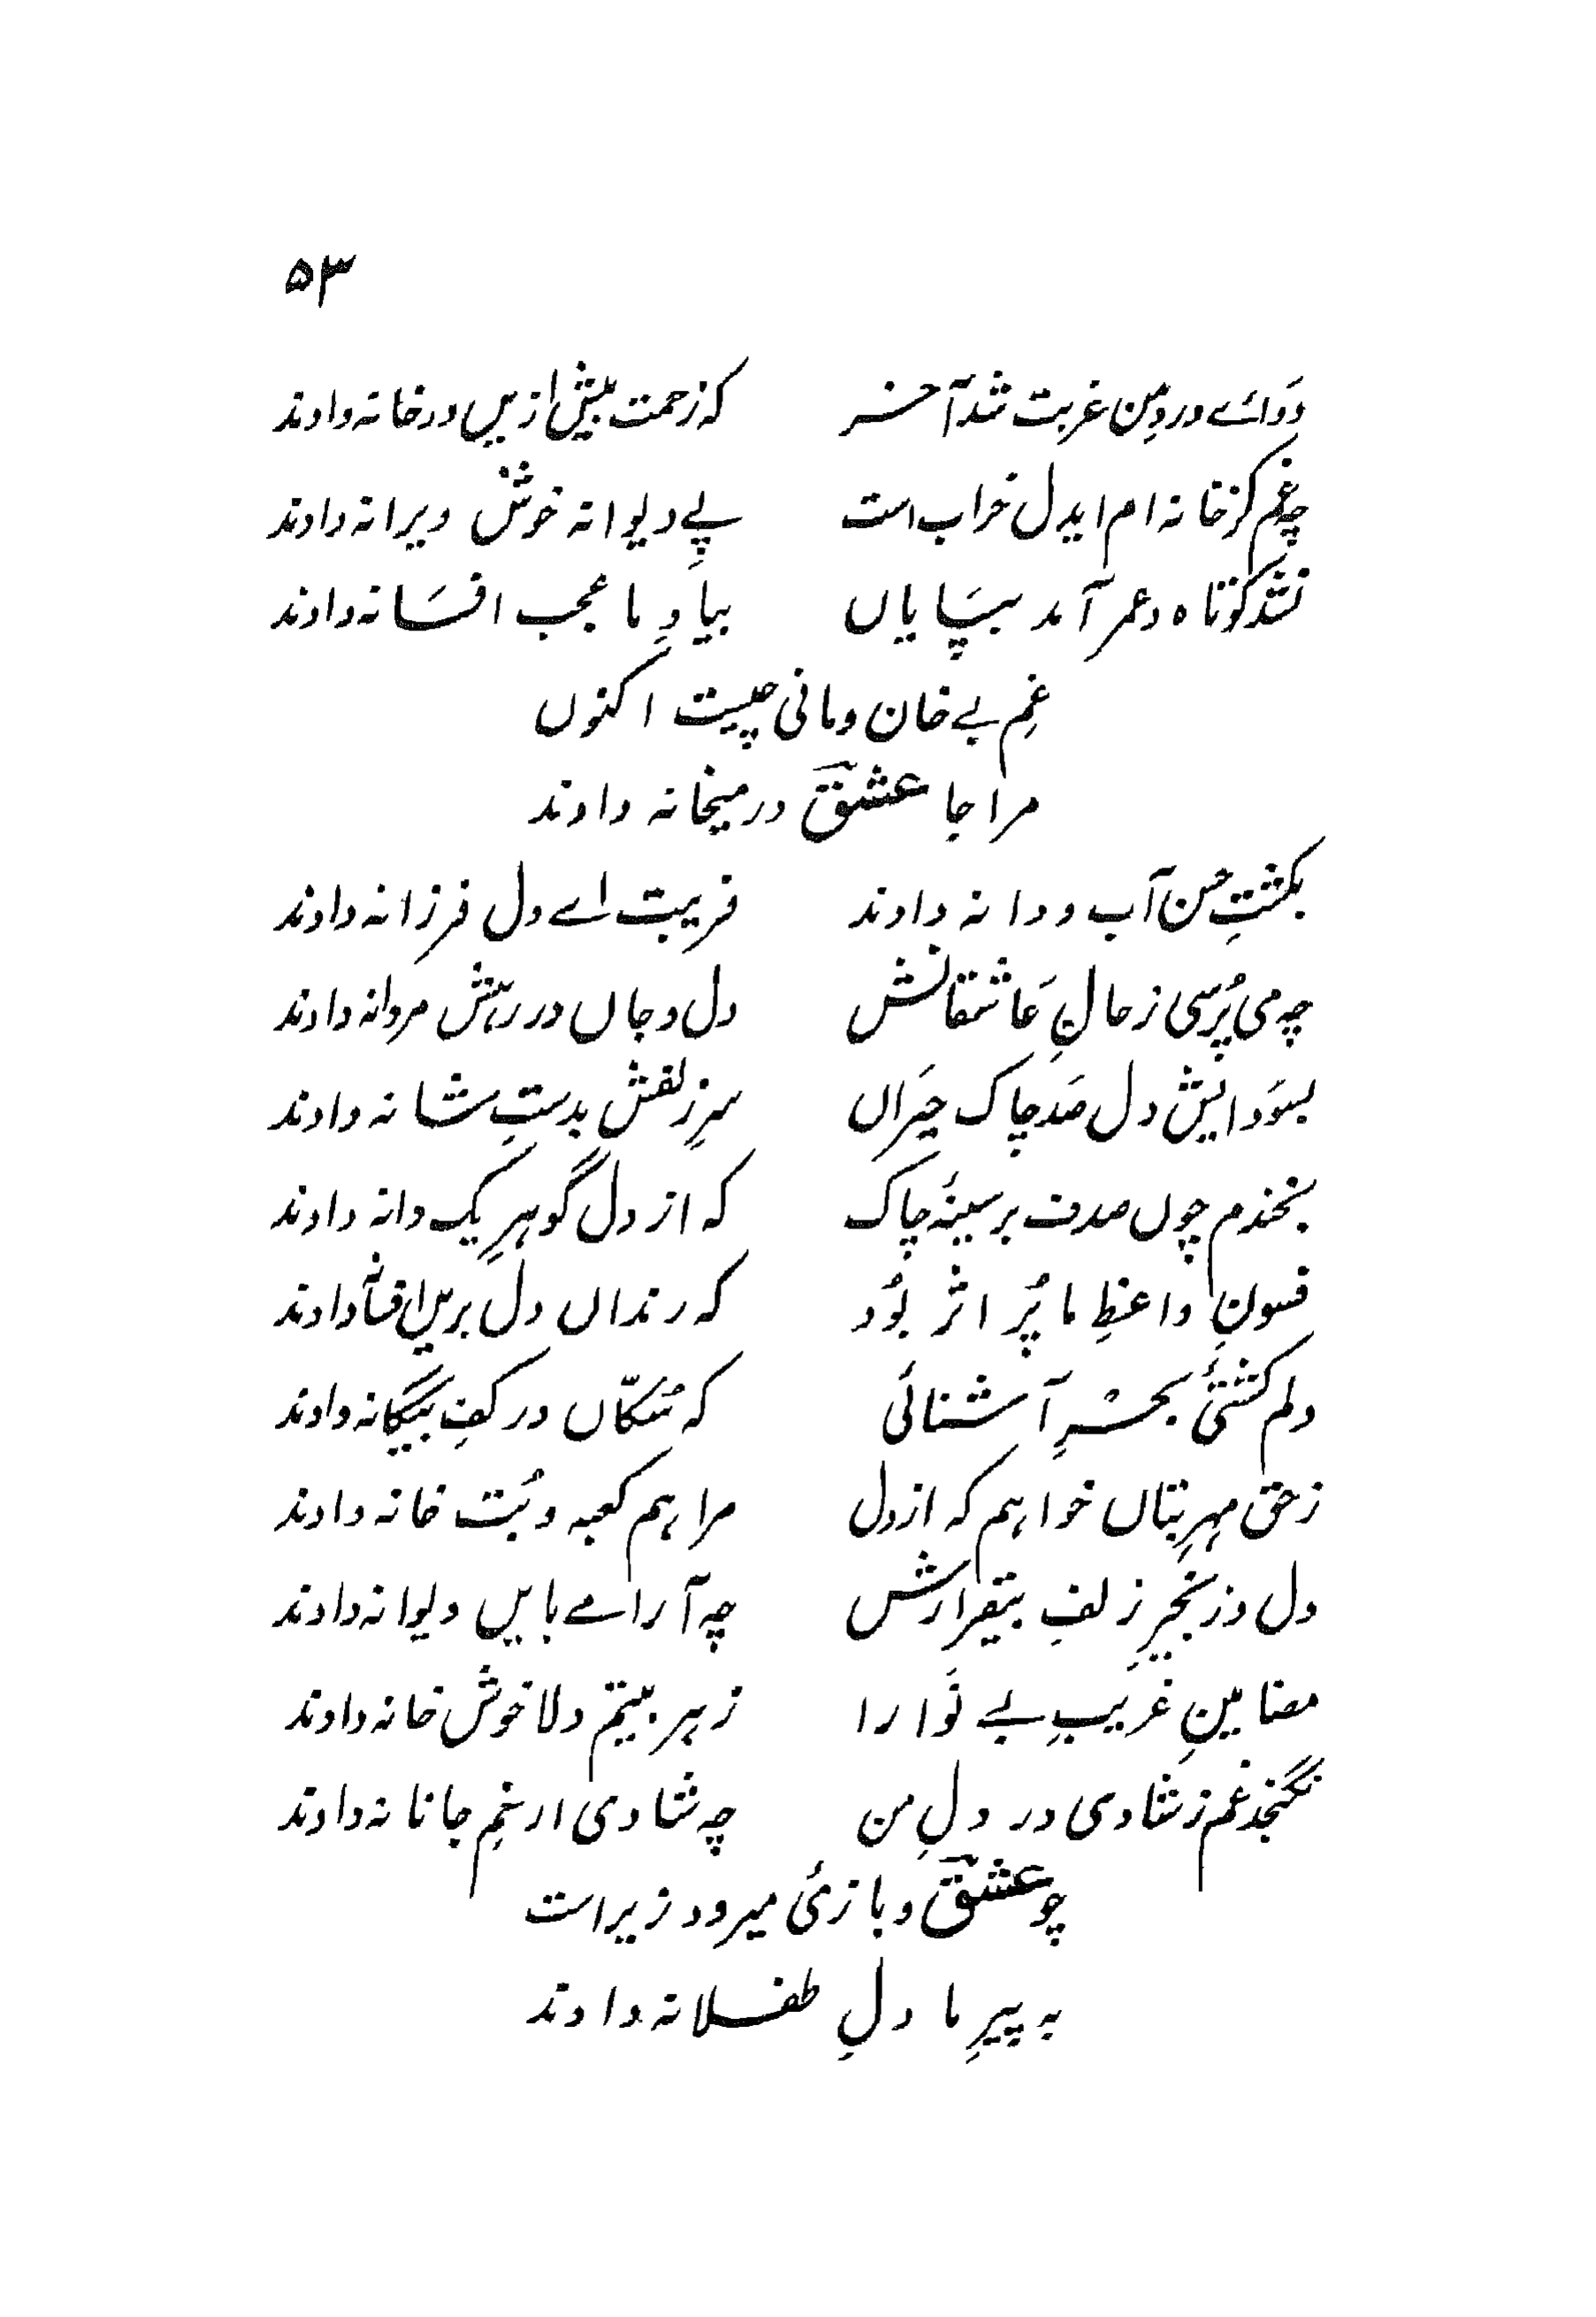 ۵۳
دَوائے دردِمن غربت شد آخر که زحمت بیش ازیں در خانه دادند
چه غم گر خانه ام ایدل خراب است پےِ دیوانه خوش ویرانه دادند
نشد کوتاه و عمر آمد بپَایاں بیادِ ما عجب افسَانه دادند
غمِ بے خان ومانی چیست اکنوں
مرا جا عشقؔ در میخانه دادند
بکشتِ حسن آب و دانه دادند فریبت اے دل فرزانه دادند
چه می پُرسی ز حالِ عَاشقانش دل و جاں در رہش مردانه دادند
بسوَدایش دل صَد چاک حیَراں سرِ زلفش بدستِ شانه دادند
بخندم چوں صدف بر سینۂ چاک که از دل گوہرِ یک دانه دادند
فسونِ واعظِ ما پُر اثر بوُد که رنداں دل بریں افسانه دادند
دلم کشتیٔ بحرِ آشنائی که سُکّاں در کفِ بیگانه دادند
ز حق مہرِ بتاں خواہم که از دل مرا ہم کعبه و بُت خانه دادند
دل در زنجیرِ زلفِ بیقرارش چه آرامے بایں دیوانه دادند
مضامینِ غریَبِ بے نَوا را ز ہر بیتم دلا خوش خانه دادند
نگنجد غم ز شادی در دلِ من چه شادی از غمِ جانانه دادند
چو عشقؔ و بازیٔ میرود زیراست
به پیرِ ما دلِ طفلانه دادند